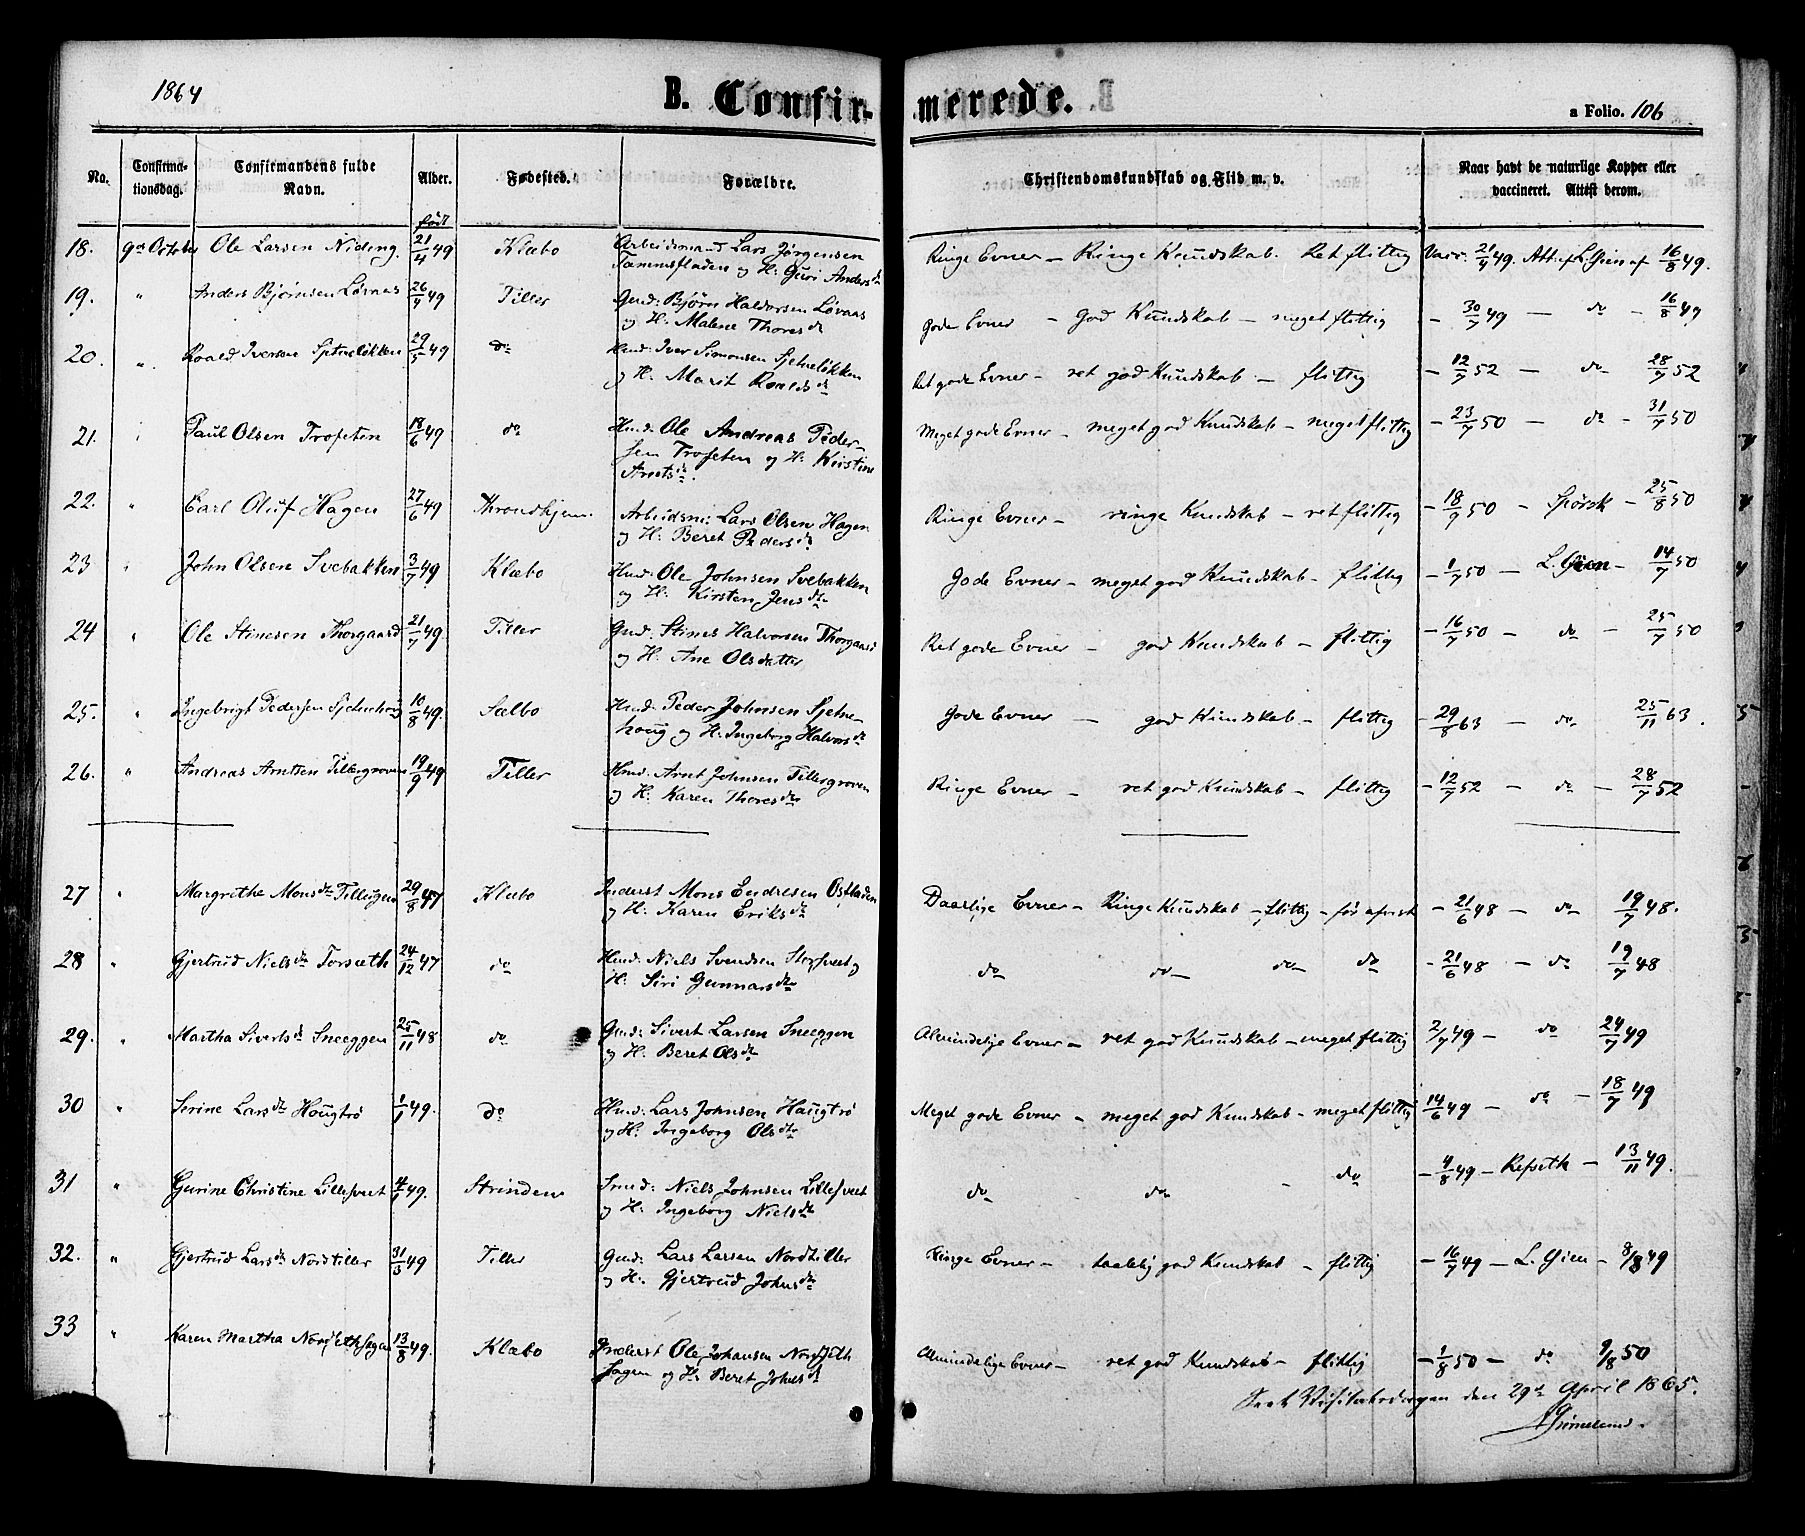 1864
B. Confir-merede.
a Folio. 106
No.
Confirma-
tionsdag.
Confirmandens fulde
Navn.
Alder.
født
Fødested.
Forældre.
Christendomskundskab og Flid m. v.
Naar havt de naturlige Kopper eller
vaccineret. Attest herom.
18. 9de October Ole Larsen Niding. 21/4 49 Klæbo Arbeidsmand Lars Jørgensen Ringe Evner – Ringe Kundskab. Ret flittig Vacc. 21/7 49. Att. af L. Gien af 16/8 49.
Tammesfladen og H: Guri Andersdr
19. " Anders Bjørnsen Løvaas 26/4 49 Tiller Gmd: Bjørn Haldorsen Løvaas Gode Evner – God Kundskab – meget flittig – 30/7 49 – do – 16/8 49
og H: Malene Thoresdr
20. " Roald Iversen Sjetneløkken 29/5 49 do Hmd: Iver Simonsen Sjetneløkken Ret gode Evner – ret god Kundskab – flittig – 12/7 52 – do – 28/7 52
og H. Marit Roaldsdr
21. " Paul Olsen Trofeten 18/6 49 do Hmd: Ole Andreas Peder- Meget gode Evner – meget god Kundskab – meget flittig – 23/7 50 – do – 31/7 50
sen Trofeten og H: Kirstine
Arntsdr.
22. " Carl Oluf Hagen 27/6 49 Throndhjem. Arbeidsm: Lars Olsen Hagen Ringe Evner – ringe Kundskab – ret flittig – 18/9 50 – Spørck – 25/8 50
og H: Beret Pedersdr
23 " John Olsen Svebakken 3/7 49 Klæbo Hmd: Ole Johnsen Svebakken Gode Evner – meget god Kundskab – flittig – 1/7 50 – L. Gien – 14/7 50
og H: Kirsten Jensdtr
24 " Ole Stinesen Thorgaard 21/7 49. Tiller Gmd: Stines Halvorsen Thorgaard Ret gode Evner – god Kundskab – flittig – 16/7 50 – do – 25/7 50
og H: Ane Olsdatter
25. " Ingebrigt Pedersen Sjetnehoug 10/8 49. Sælbo Hmd: Peder Johnsen Sjetne- Gode Evner – god Kundskab – flittig – 29/8 63 – do – 25/11 63.
houg og H: Ingeborg Halvorsdr
26. " Andreas Arntsen Tillergroven 19/9 49 Tiller Hmd: Arnt Johnsen Tillergroven Ringe Evner – ret god Kundskab – flittig – 12/7 52 – do – 28/7 52
og H: Karen Thoresdtr
27 " Margrethe Monsdtr Tillergen 29/8 47 Klæbo Inderst Mons Endresen Ostladen Daarlige Evner – Ringe Kundskab – flittig – før afvist – 21/6 48 – do – 19/7 48.
og H: Karen Eriksdr
28 " Gjertrud Nielsdtr Forsæth 24/12 47 do Hmd: Niels Svendsen Storsvet og do do do do – 21/6 48 – do – 19/7 48
H: Siri Gunnarsdtr
29. " Martha Sivertsdr Sneeggen 25/11 48 do Gmd: Sivert Larsen Sneeggen Almindelige Evner – ret god Kundskab – meget flittig 2/7 49 – do 24/7 49
og H: Beret Olsdtr
30 " Serine Larsdtr Hougtrø 1/1 49. do Hmd: Lars Johnsen Haugtrø Meget gode Evner – meget god Kundskab – meget flittig 14/6 49 – do – 18/7 49
og H: Ingeborg Olsdtr
31 " Gurine Christine Lillesvet 4/1 49. Strinden Smed: Niels Johnsen Lillesvet do do do – 4/8 49 – Refseth – 13/11 49.
og H: Ingeborg Nielsdtr
32. " Gjertrud Larsdr Nordtiller 31/3 49 Tiller Gmd: Lars Larsen Nordtiller Ringe Evner – taalelig god Kundskab – flittig – 16/7 49 – L. Gien – 8/8 49
og H: Gjertrud Johnsdtr
33 " Karen Martha Nordsethhagen 13/8 49. Klæbo Inderst Ole Johansen Nordseth Almindelige Evner – ret god Kundskab – flittig – 1/8 50 – do 9/8 50
hagen og H: Beret Johnsdr
Seet Visitatsdagen den 29de April 1865.